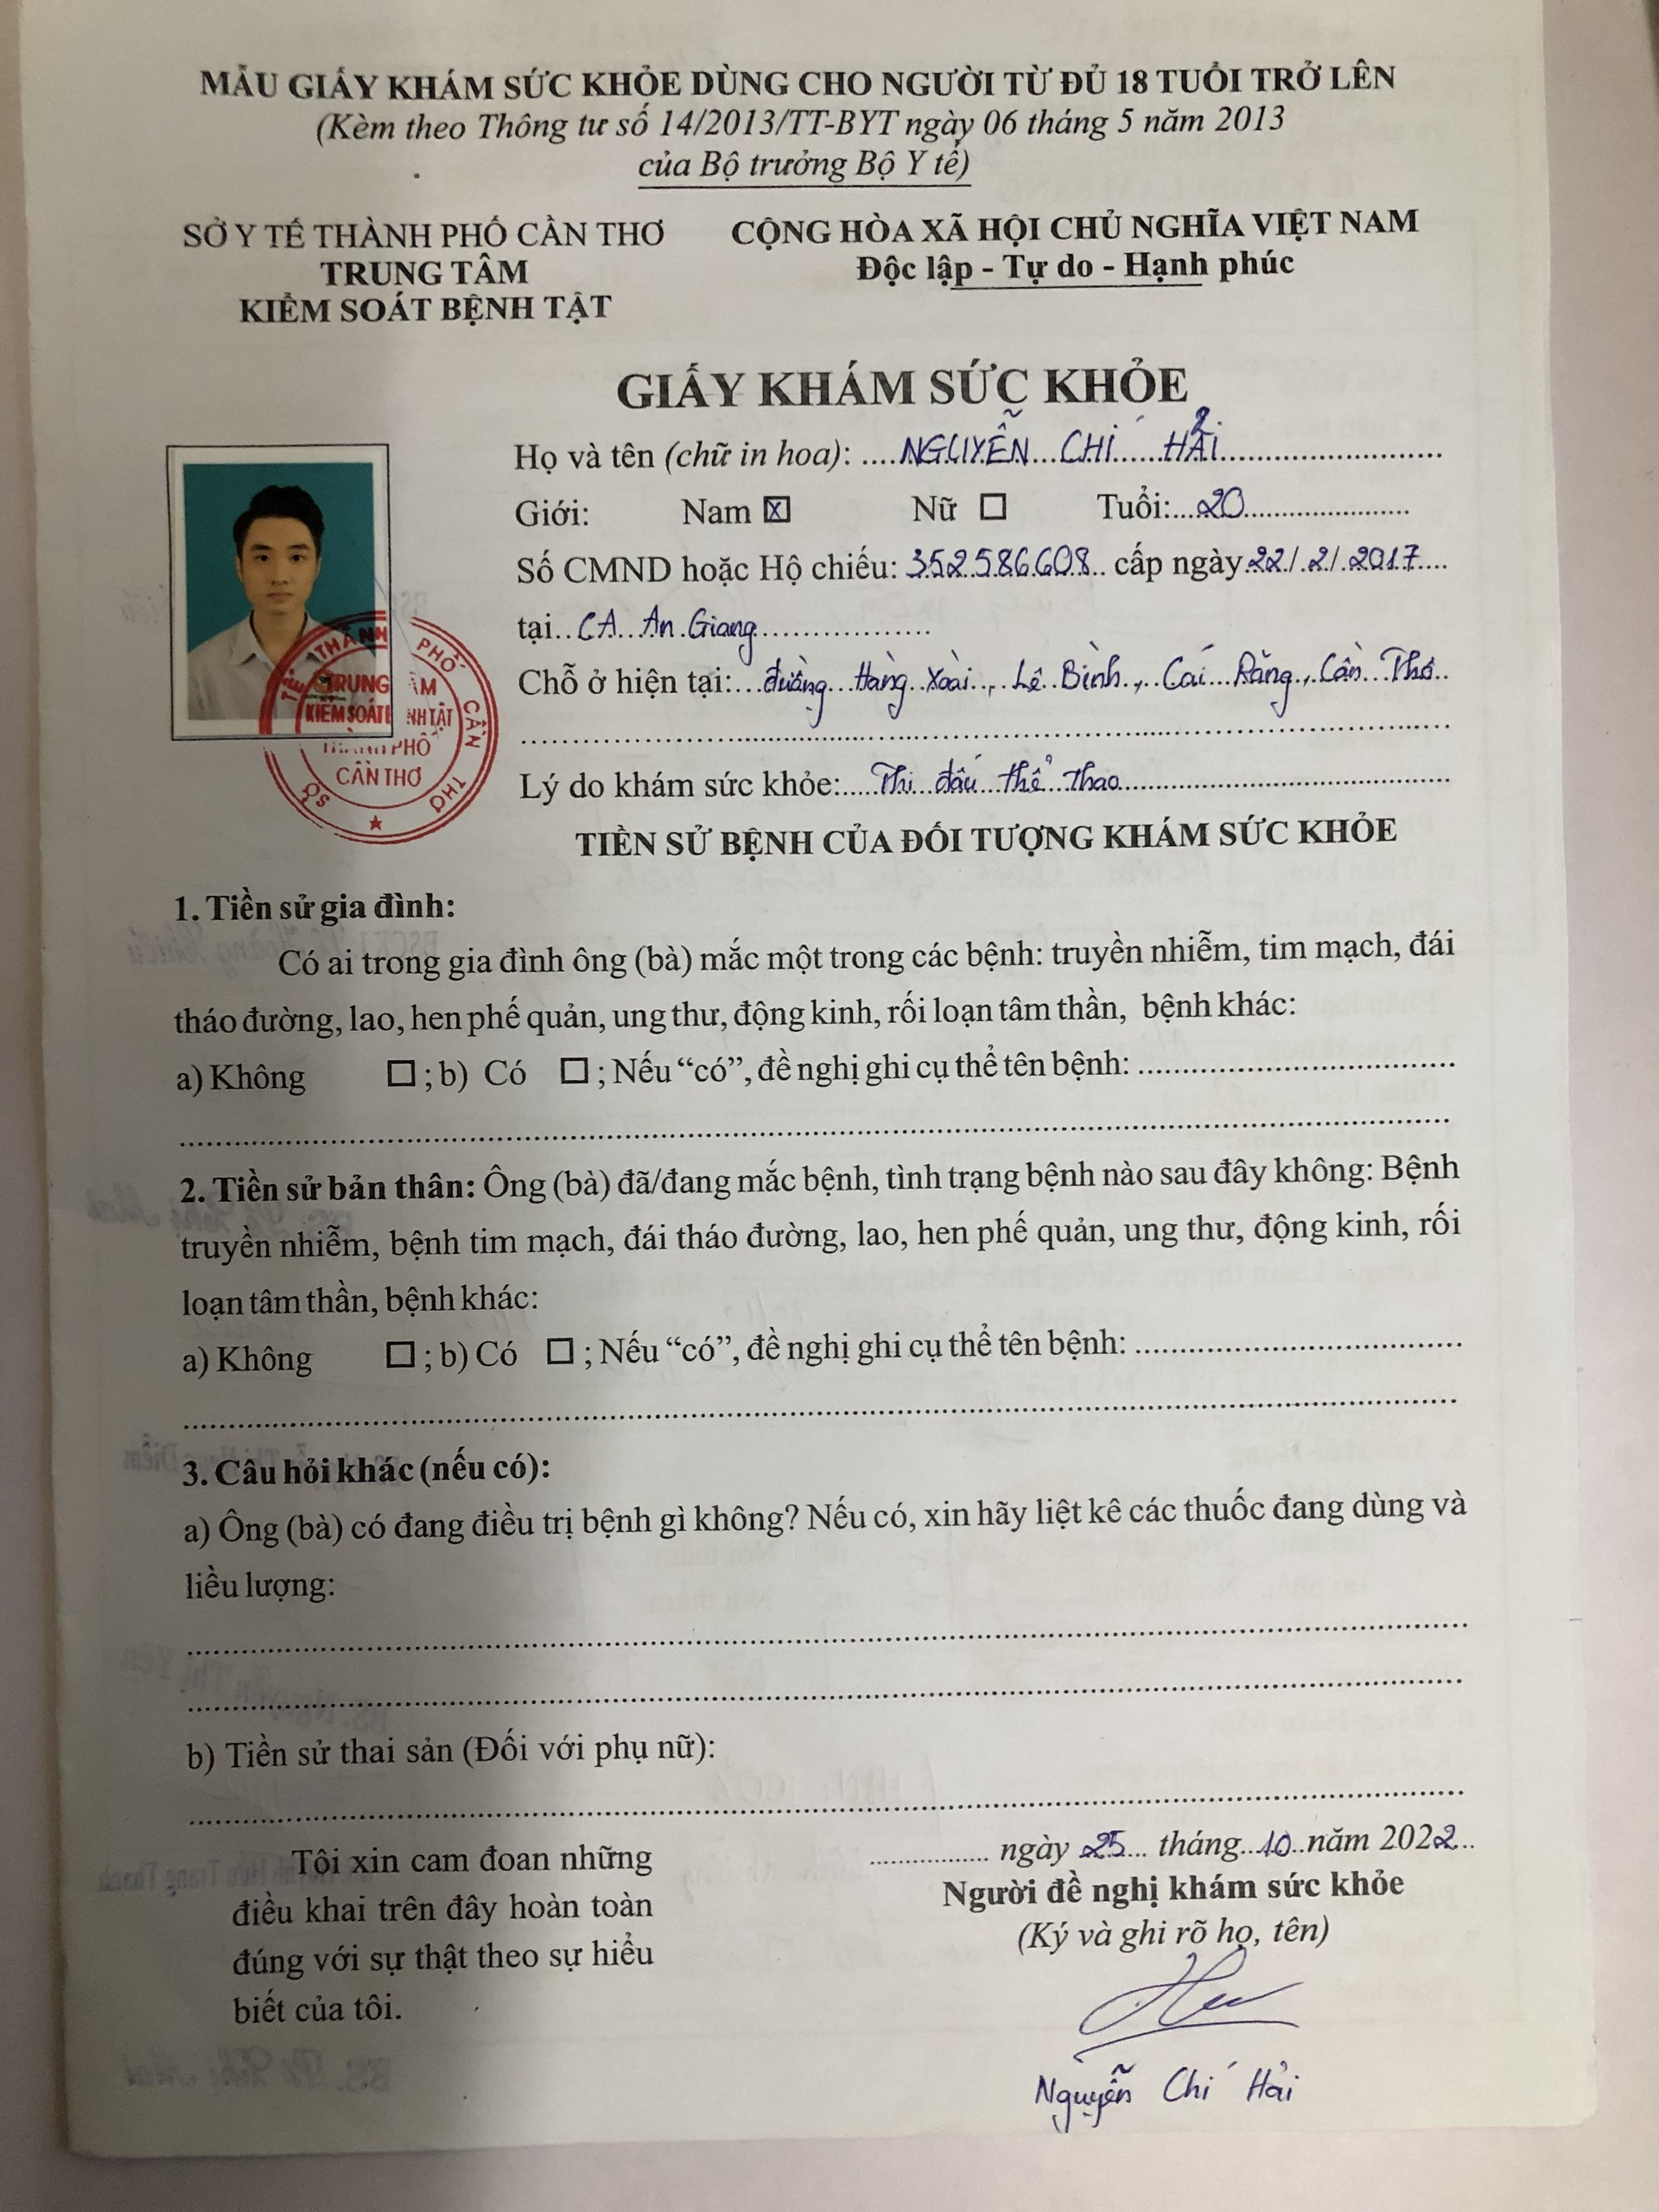 MẪU GIẤY KHÁM SỨC KHỎE DÙNG CHO NGƯỜI TỪ ĐỦ 18 TUỔI TRỞ LÊN
(Kèm theo Thông tư số 14/2013/TT-BYT ngày 06 tháng 5 năm 2013
của Bộ trưởng Bộ Y tế)
SỞ Y TẾ THÀNH PHỐ CẦN THƠ
TRUNG TÂM
KIỂM SOÁT BỆNH TẬT
CỘNG HÒA XÃ HỘI CHỦ NGHĨA VIỆT NAM
Độc lập - Tự do - Hạnh phúc
GIẤY KHÁM SỨC KHỎE
Họ và tên (chữ in hoa): ....NGUYỄN...CHÍ......HẢI..........................
Giới: Nam ☒ Nữ ☐ Tuổi:...20......................
Số CMND hoặc Hộ chiếu: 352586608.. cấp ngày 22/.2/.2017....
tại..CA..An.Giang..................
Chỗ ở hiện tại:...đường...Hàng..Xoài.,..Lê..Bình.,..Cái...Răng.,.Cần...Thơ..
..........................................................................................
Lý do khám sức khỏe:.....Thi...đấu...thể..Thao......................................
TIỀN SỬ BỆNH CỦA ĐỐI TƯỢNG KHÁM SỨC KHỎE
TẾ THÀNH PHỐ CẦN THƠ
SỞ
TRUNG TÂM
KIỂM SOÁT BỆNH TẬT
THÀNH PHỐ
CẦN THƠ
1. Tiền sử gia đình:
Có ai trong gia đình ông (bà) mắc một trong các bệnh: truyền nhiễm, tim mạch, đái
tháo đường, lao, hen phế quản, ung thư, động kinh, rối loạn tâm thần, bệnh khác:
a) Không ☐ ; b) Có ☐ ; Nếu “có”, đề nghị ghi cụ thể tên bệnh: ...................................
..........................................................................................
2. Tiền sử bản thân: Ông (bà) đã/đang mắc bệnh, tình trạng bệnh nào sau đây không: Bệnh
truyền nhiễm, bệnh tim mạch, đái tháo đường, lao, hen phế quản, ung thư, động kinh, rối
loạn tâm thần, bệnh khác:
a) Không ☐ ; b) Có ☐ ; Nếu “có”, đề nghị ghi cụ thể tên bệnh: ...................................
..........................................................................................
3. Câu hỏi khác (nếu có):
a) Ông (bà) có đang điều trị bệnh gì không? Nếu có, xin hãy liệt kê các thuốc đang dùng và
liều lượng:
..........................................................................................
..........................................................................................
b) Tiền sử thai sản (Đối với phụ nữ):
..........................................................................................
Tôi xin cam đoan những
điều khai trên đây hoàn toàn
đúng với sự thật theo sự hiểu
biết của tôi.
................. ngày 25... tháng...10..năm 2022...
Người đề nghị khám sức khỏe
(Ký và ghi rõ họ, tên)
Nguyễn Chí Hải